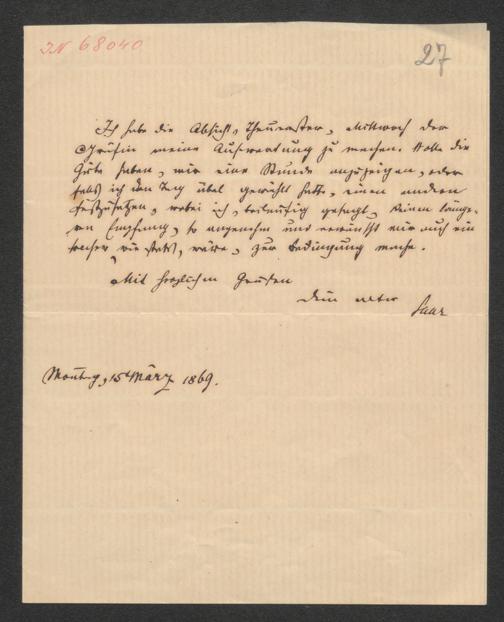 IN 68040
27
Ich habe die Absicht, Theuerster, Mittwoch der
Gräfin meine Aufwartung zu machen. Wolle die
Güte haben, mir eine Stunde anzuzeigen, oder
falls ich den Tag übel gewählt hätte, einen andern
festzusetzen, wobei ich, beiläufig gesagt, keinen länge-
ren Empfang, so angenehm und erwünscht mir auch ein
solcher wie stets, wäre, zur Bedingung mache.
Mit herzlichen Grüßen
Dein alter
Saar
Montag, 15t März 1869.